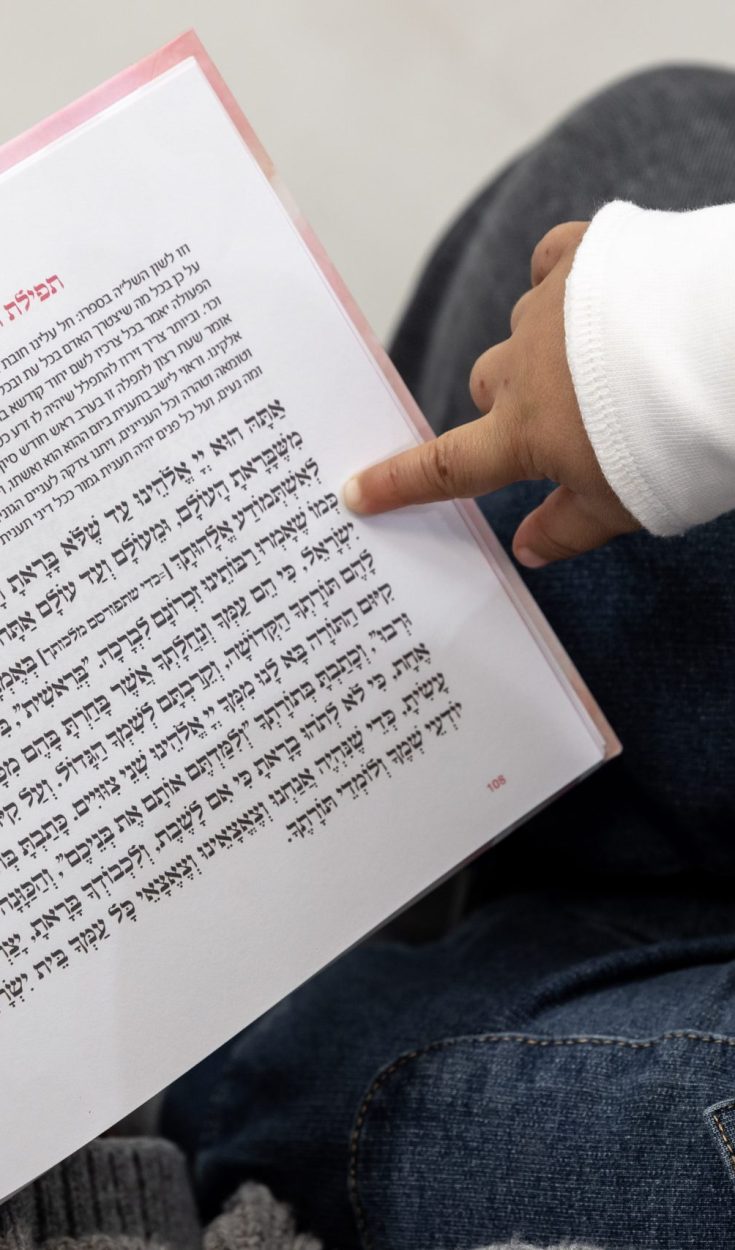 תפילת
וזו לשון השל״ה בספרו: חל עלינו חובת
על כן בכל מה שיצטרך האדם בכל עת ובכל
הפעולה יאמר בכל צרכיו לשם יחוד קודשא
וכו׳. וביותר צריך זירוז להתפלל שיהיה לו זרע
אומר שעת רצון לתפלה זו בערב ראש חודש
אלקינו. וראוי לישב בתענית ביום ההוא הוא ואשתו,
וטומאה וטהרה וכל העניינים, ויתנו צדקה לעניים
ומה נעים. ועל כל פנים יהיה תענית גמור ככל דיני תענית
אַתָּה הוּא יְיָ אֱלֹהֵינוּ עַד שֶׁלֹּא בָרָאתָ
מִשֶּׁבָּרָאתָ הָעוֹלָם, וּמֵעוֹלָם וְעַד עוֹלָם אַתָּה
לְאִשְׁתְּמוֹדַע אֱלָהוּתָךְ [=כדי שתפורסם מלכותך]
כְּמוֹ שֶׁאָמְרוּ רַבּוֹתֵינוּ זִכְרוֹנָם לִבְרָכָה, "בְּרֵאשִׁית",
יִשְׂרָאֵל, כִּי הֵם עַמְּךָ וְנַחֲלָתְךָ אֲשֶׁר בָּחַרְתָּ בָּהֶם
לָהֶם תּוֹרָתְךָ הַקְּדוֹשָׁה, וְקֵרַבְתָּם לְשִׁמְךָ הַגָּדוֹל. וְעַל
קִיּוּם הַתּוֹרָה בָּא לָנוּ מִמְּךָ יְיָ אֱלֹהֵינוּ שְׁנֵי צִוּוּיִים, כָּתַבְתָּ
וּרְבוּ", וְכָתַבְתָּ בְּתוֹרָתְךָ "וְלִמַּדְתֶּם אוֹתָם אֶת בְּנֵיכֶם", וְהַכַּוָּנָה
אֶחָת. כִּי לֹא לַתֹּהוּ בָרָאתָ כִּי אִם לָשֶׁבֶת, וְלִכְבוֹדְךָ בָּרָאתָ,
עָשִׂיתָ, כְּדֵי שֶׁנִּהְיֶה אֲנַחְנוּ וְצֶאֱצָאֵינוּ וְצֶאֱצָאֵי כָּל עַמְּךָ בֵּית
יוֹדְעֵי שְׁמֶךָ וְלוֹמְדֵי תוֹרָתֶךָ.
108